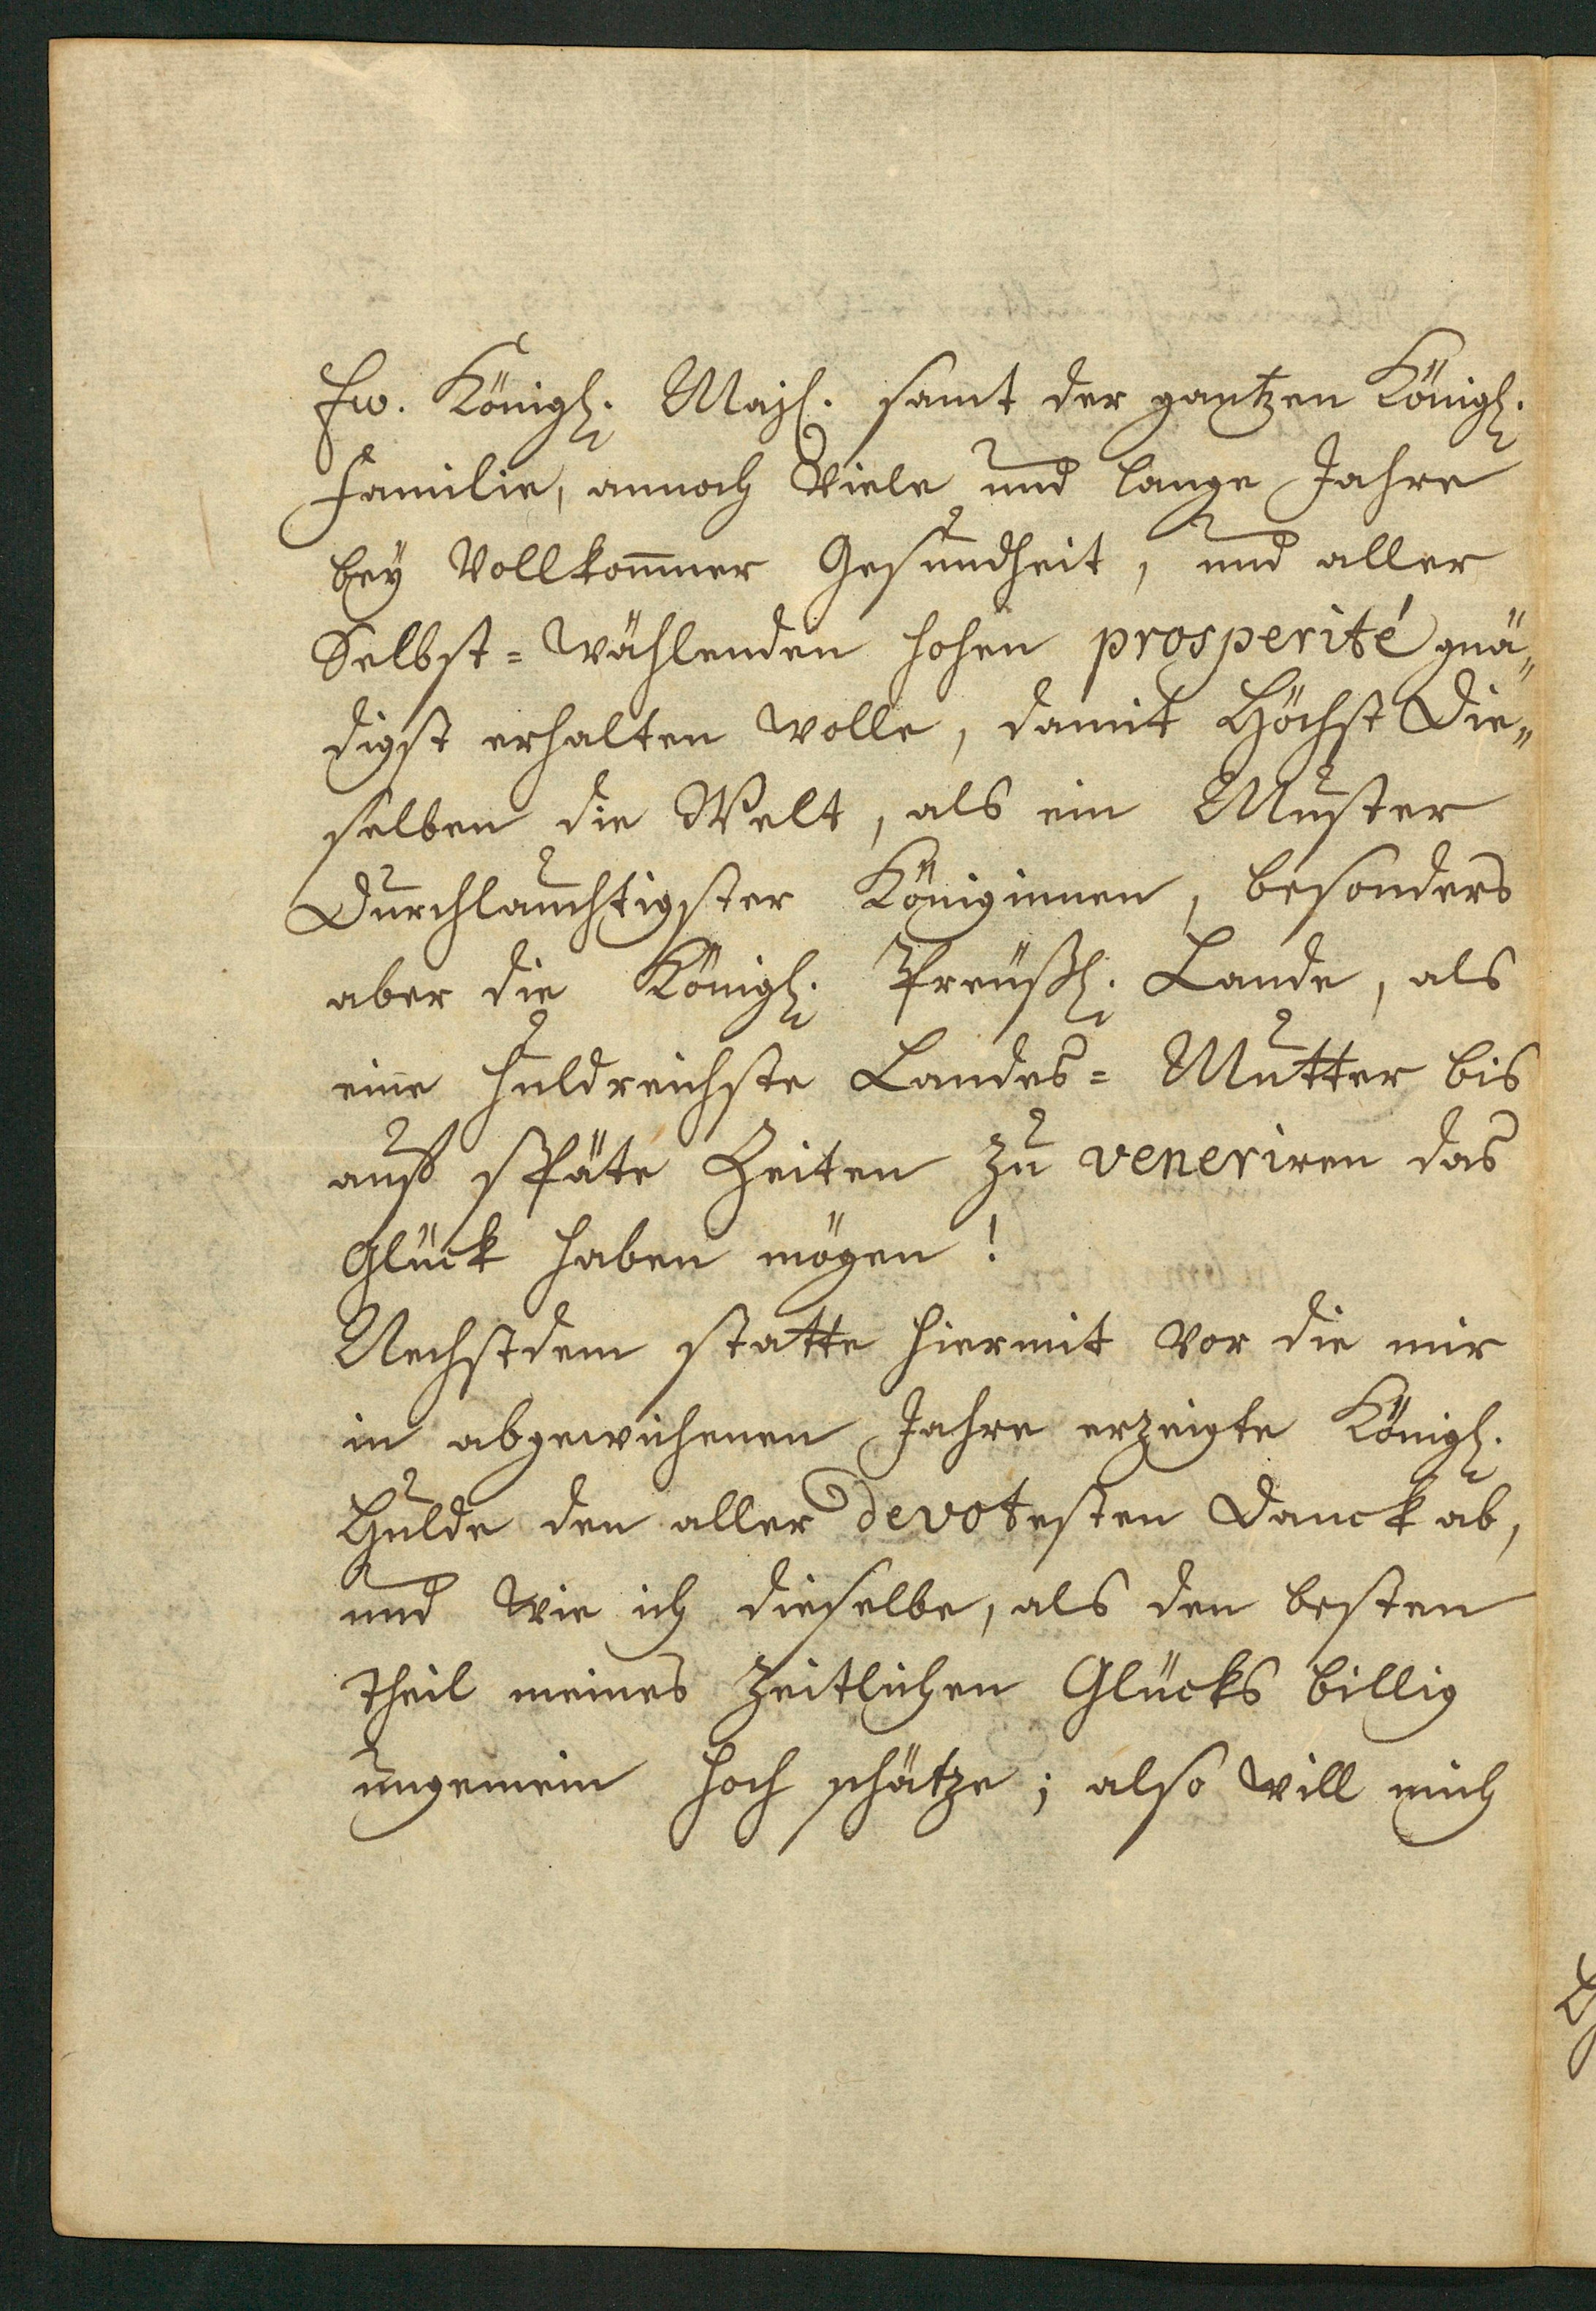 Ew. Königl. Majl. samt der gantzen Königl.
Familie, annoch Viele und lange Jahre
bey Vollkom̄ner Gesundheit, und aller
Selbst-wählenden hohen prosperité gnä„
digst erhalten wolle, damit Höchst Die„
selben die Welt, als ein Muster
Durchlauchtigster Königinnen, besonders
aber die Königl. Preüßl. Lande, als
eine huldreichste Landes-Mutter bis
auff späte Zeiten zu veneriren das
Glück haben mögen!
Nechstdem statte hiermit vor die mir
in abgewichenen Jahre erzeigte Königl.
Hulde den aller devotesten Danck ab,
und wie ich dieselbe, als den besten
Theil meines zeitlichen Glücks billig
ungemein hoch schätze; also will mich